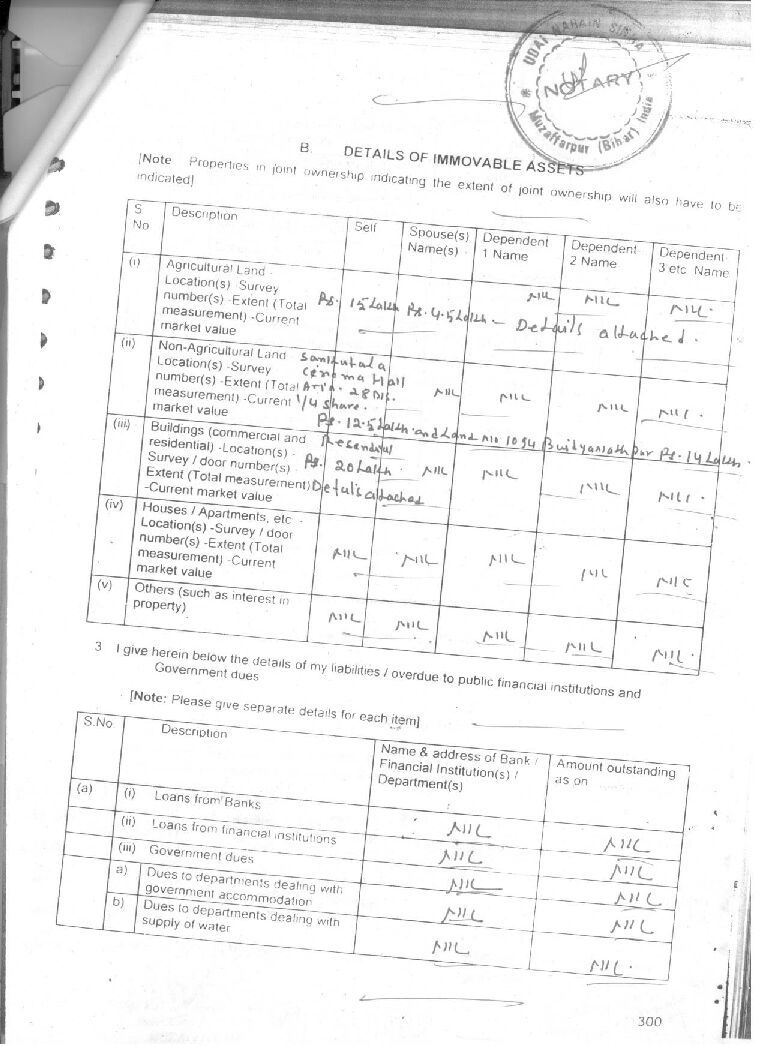 UDAI NARAIN SINHA
NOTARY
Muzaffarpur (Bihar) India
B. DETAILS OF IMMOVABLE ASSETS
[Note Properties in joint ownership indicating the extent of joint ownership will also have to be
indicated]
S No Description Self Spouse(s) Name(s) - Dependent 1 Name Dependent- 2 Name Dependent- 3 etc. Name
(i) Agricultural Land -
Location(s) -Survey
number(s) -Extent (Total
measurement) -Current
market value
Rs. 15 Lakh Rs. 4.5 Lakh - NIL NIL NIL.
Details attached.
(ii) Non-Agricultural Land
Location(s) -Survey
number(s) -Extent (Total
measurement) -Current
market value
Cinema Hall
28 Dis.
1/4 share.
NIL NIL NIL NIL.
Rs. 12.5 Lakh and Land No 1094 Rs. 14 Lakh.
(iii) Buildings (commercial and
residential) -Location(s) -
Survey / door number(s) -
Extent (Total measurement)
-Current market value
Rs. 20 Lakh. NIL NIL NIL NIL.
Details attached
(iv) Houses / Apartments, etc -
Location(s) -Survey / door
number(s) -Extent (Total
measurement) -Current
market value
NIL NIL NIL NIL NIL
(v) Others (such as interest in
property)
NIL NIL NIL NIL NIL.
3 I give herein below the details of my liabilities / overdue to public financial institutions and
Government dues
[Note: Please give separate details for each item]
S.No. Description Name & address of Bank / Financial Institution(s) / Department(s) Amount outstanding as on
(a) (i) Loans from Banks NIL NIL
(ii) Loans from financial institutions NIL NIL
(iii) Government dues NIL NIL
a) Dues to departments dealing with
government accommodation
NIL NIL
b) Dues to departments dealing with
supply of water
NIL NIL.
300